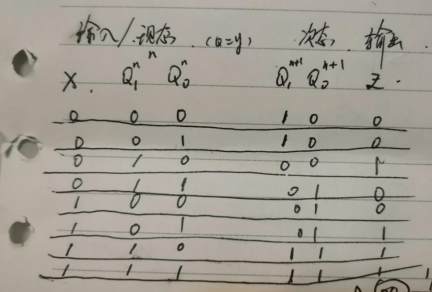 输入/现态 (Q=y) 次态 输出
X Q₁ⁿ Q₀ⁿ Q₁ⁿ⁺¹ Q₀ⁿ⁺¹ Z
0 0 0 1 0 0
0 0 1 1 0 0
0 1 0 0 0 1
0 1 1 0 1 0
1 0 0 0 1 0
1 0 1 0 1 1
1 1 0 1 1 1
1 1 1 1 1 1